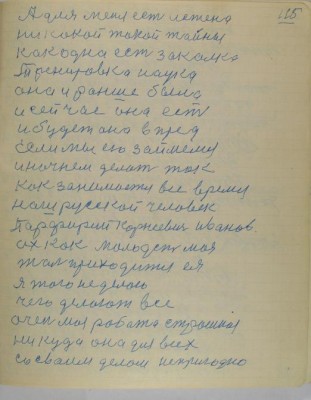 115
А для меня ест истено
никокой токой тайны
как одна ест закалка
Тренировка наука
она и ранше была
и сейчас она ест
и будет она впред
Если мы ею займемся
и начнем делат так
как занимается все время
наш русской человек
Парфирий Корнеевич Иванов.
ох как молодст моя
там приходится ея
я этого неделаю
чего делают все
очен моя работа страшная
никуда она для всех
со своем делом непригодно